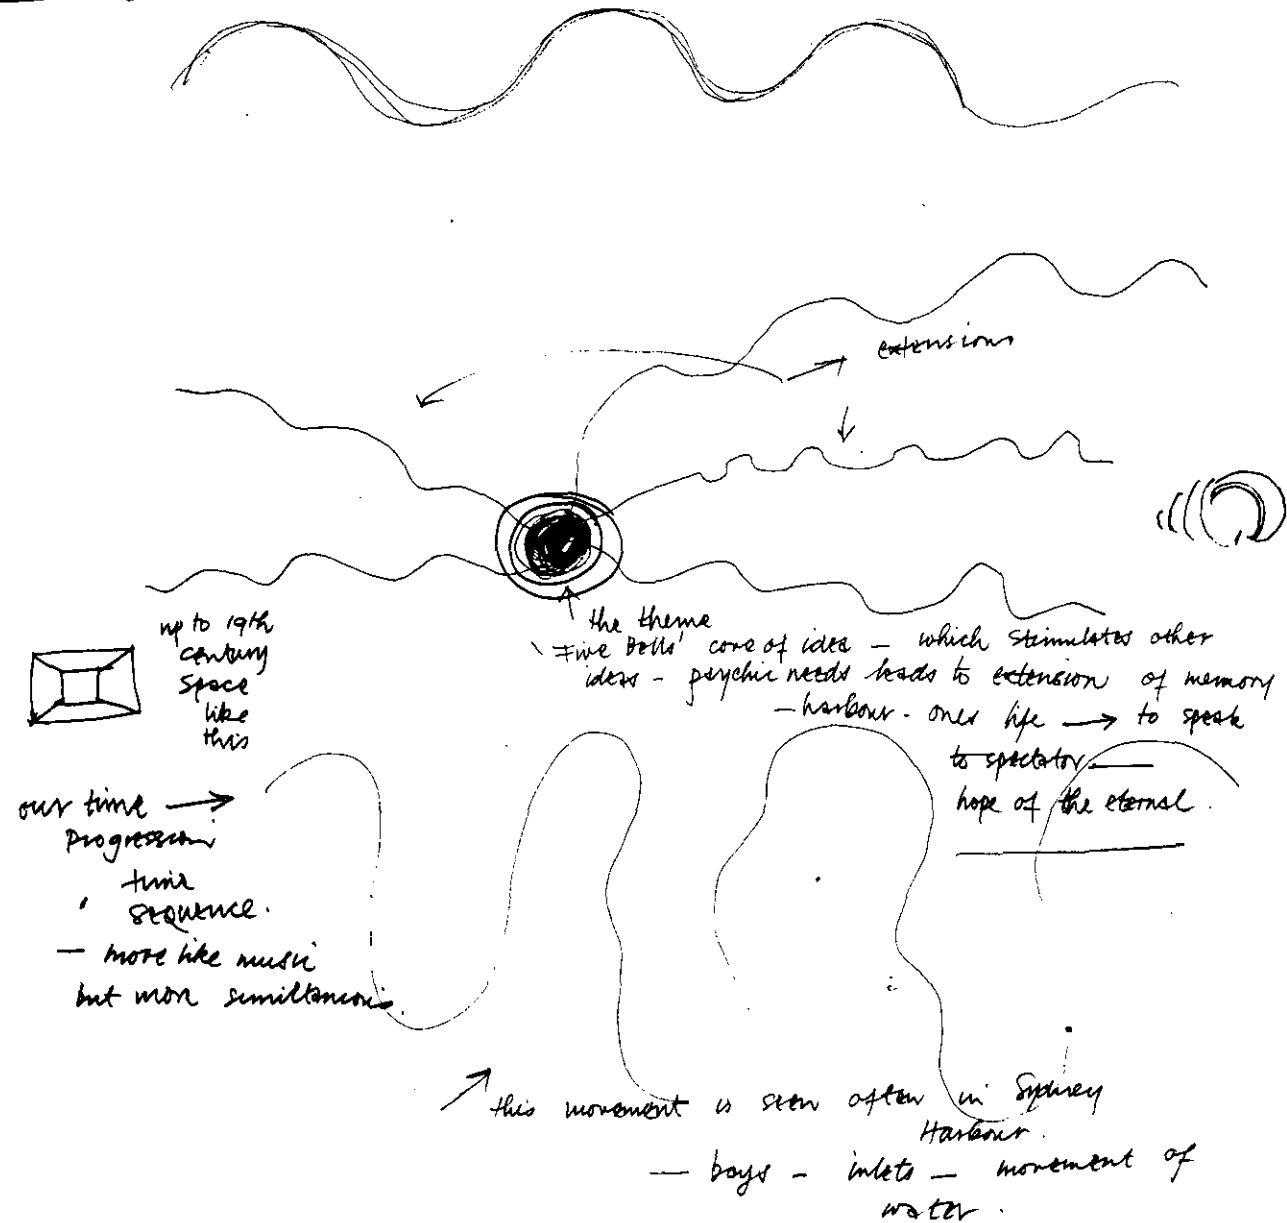 extensions
up to 19th
century
space
like
this
the theme
'Five Bells' core of idea – which stimulates other
ideas – psychic needs leads to extension of memory
– harbour – ones life → to speak
to spectator —
hope of the eternal.
our time →
progression
time
sequence.
— more like music
but more simultaneous.
this movement is seen often in Sydney
Harbour.
— bays – inlets – movement of
water.